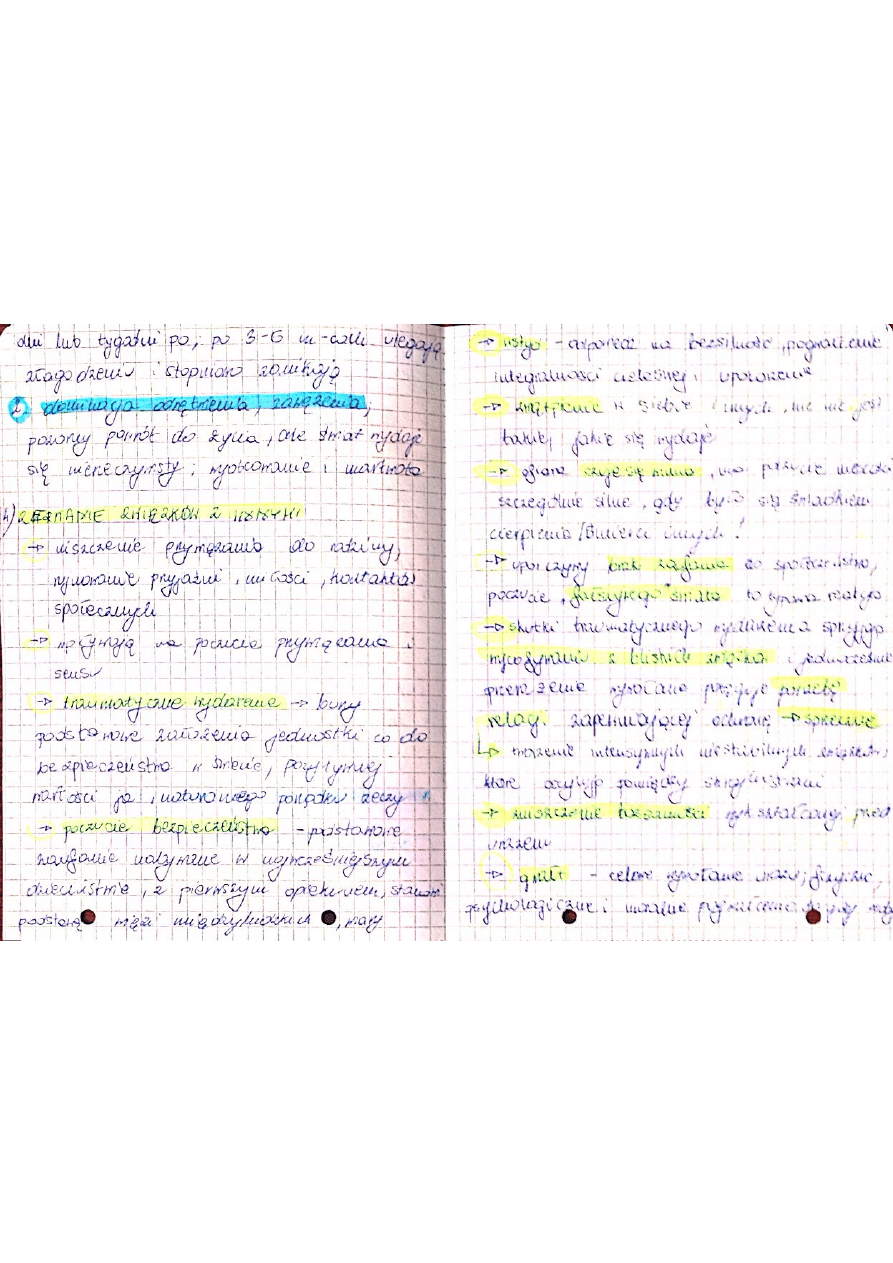 dni lub tygodni po, po 3-6 m-cach ulegają
złagodzeniu i stopniowo zanikają
2. dominacja odrętwienia, zawężenia,
pozorny powrót do życia, ale świat wydaje
się nierzeczywisty, wyobcowanie i martwota
4) ZERWANIE ZWIĄZKÓW Z INNYMI
→ niszczenie przywiązania do rodziny,
zrywanie przyjaźni, miłości, kontaktów
społecznych
→ wpływają na poczucie przywiązania i
sensu
→ traumatyczne wydarzenie → burzy
podstawowe założenia jednostki co do
bezpieczeństwa w świecie, pozytywnej
wartości ja i naturalnego porządku rzeczy
→ poczucie bezpieczeństwa - podstawowe
zaufanie nabywane w najwcześniejszym
dzieciństwie, z pierwszym opiekunem, stanowi
podstawę więzi międzyludzkich, wiary
→ wstyd - odpowiedź na bezsilność, pogwałcenie
integralności cielesnej i upokorzenie
→ zwątpienie w siebie i innych, nic nie jest
takie, jakie się wydaje
→ ofiara czuje się winna,
szczególnie silne, gdy było się świadkiem
cierpienia/śmierci innych!
→ uporczywy brak zaufania do społeczeństwa,
poczucie „fałszywego" świata to typowa reakcja
→ skutki traumatycznego wydarzenia sprzyjają
wycofywaniu z bliskich związków i jednocześnie
przerażenie wywołane potęguje potrzebę
relacji zapewniającej ochronę → sprzeczne
↳ tworzenie intensywnych niestabilnych związków,
które oscylują pomiędzy skrajnościami
→ zniszczenie tożsamości wykształconej przed
urazem
→ gwałt - celowe wywołanie urazu, fizyczne,
psychologiczne i moralne pogwałcenie